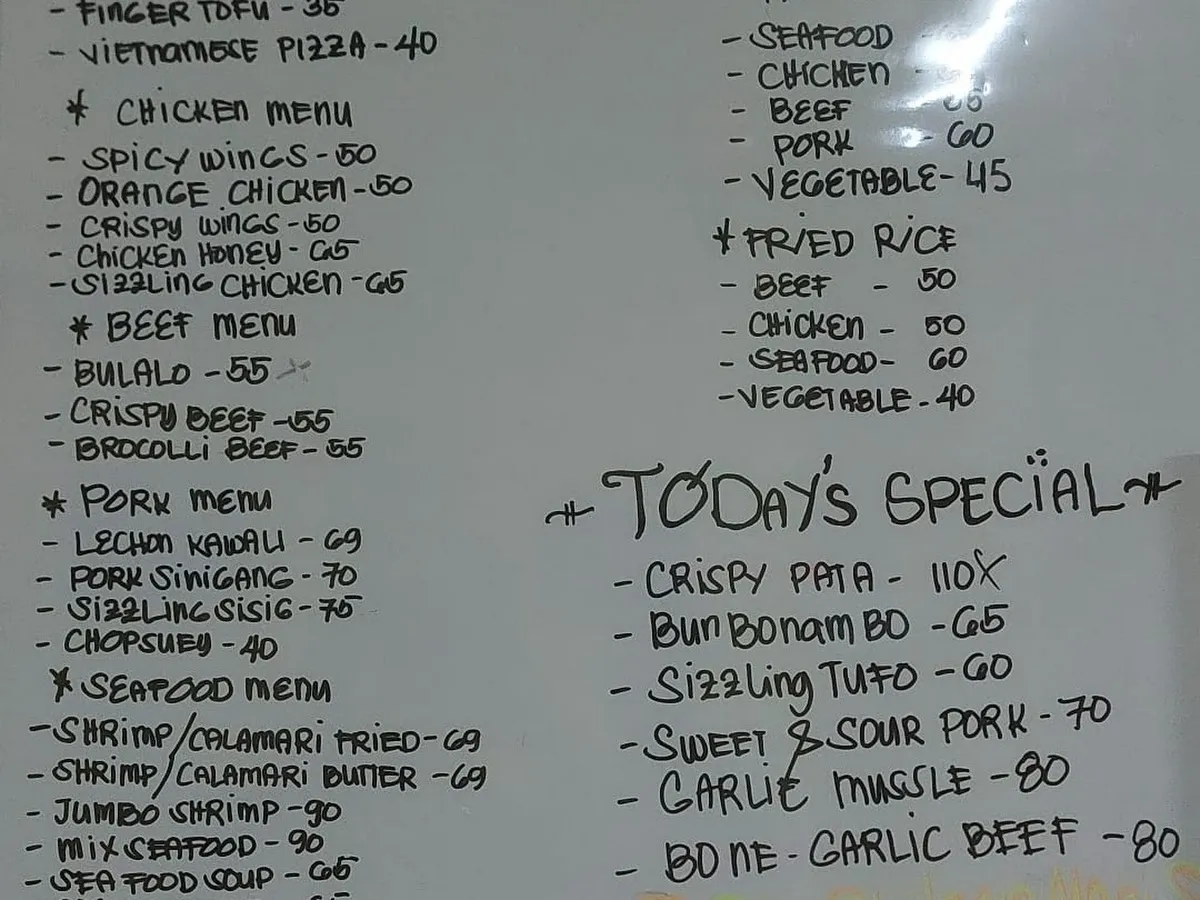 - FINGER TOFU - 35
- VIETNAMESE PIZZA - 40
* CHICKEN MENU
- SPICY WINGS - 50
- ORANGE CHICKEN - 50
- CRISPY WINGS - 50
- CHICKEN HONEY - 65
- SIZZLING CHICKEN - 65
* BEEF MENU
- BULALO - 55
- CRISPY BEEF - 55
- BROCOLLI BEEF - 55
* PORK MENU
- LECHON KAWALI - 69
- PORK SINIGANG - 70
- SIZZLING SISIG - 75
- CHOPSUEY - 40
* SEAFOOD MENU
- SHRIMP/CALAMARI FRIED - 69
- SHRIMP/CALAMARI BUTTER - 69
- JUMBO SHRIMP - 90
- MIX SEAFOOD - 90
- SEA FOOD SOUP - 65
- SEAFOOD
- CHICKEN -
- BEEF -
- PORK - 60
- VEGETABLE - 45
* FRIED RICE
- BEEF - 50
- CHICKEN - 50
- SEAFOOD - 60
- VEGETABLE - 40
TODAY'S SPECIAL
- CRISPY PATA - 110X
- Bun Bonam BO - 65
- Sizzling TUFO - 60
- SWEET & SOUR PORK - 70
- GARLIC MUSSLE - 80
- BONE - GARLIC BEEF - 80